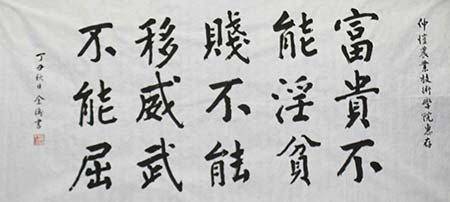 仲恺農業技術學院惠存
富貴不
能淫貧
賤不能
移威武
不能屈
丁丑秋日